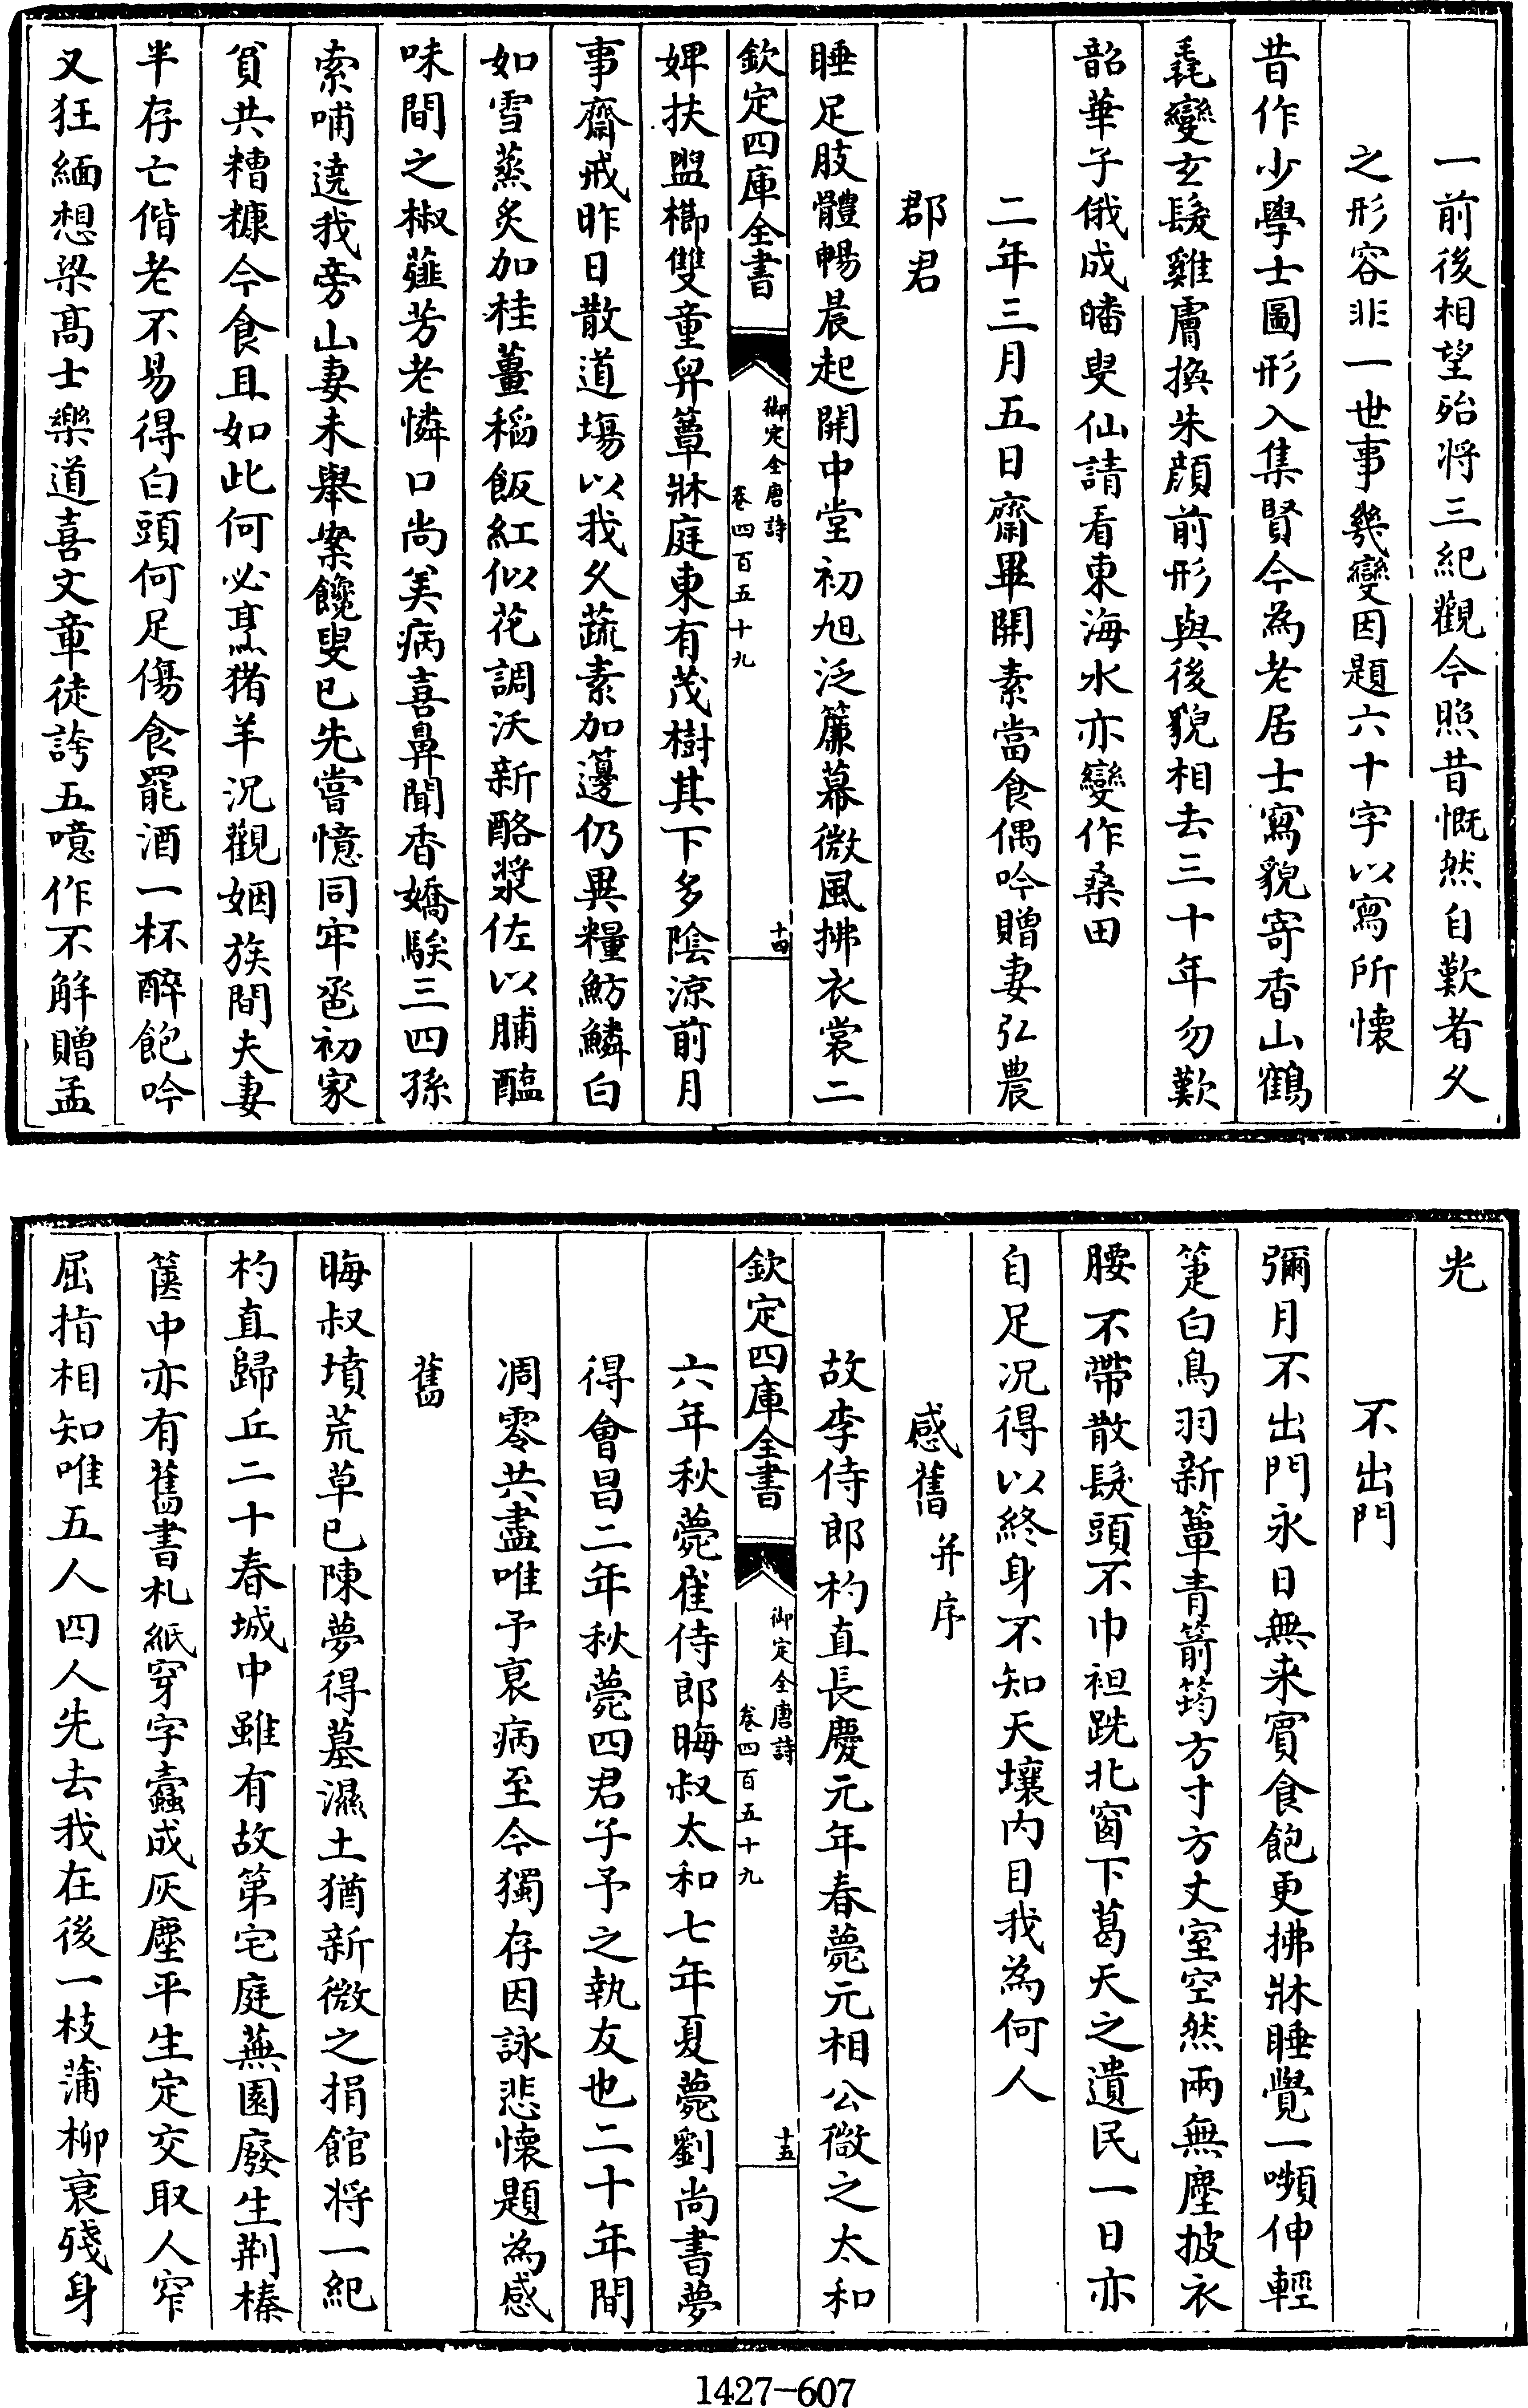 一前後相望殆將三紀觀今照昔慨然自歎者久
之形容非一世事幾變因題六十字以寫所懷
昔作少學士圖形入集賢今為老居士寫貌寄香山鶴
毳變玄髮雞膚換朱顔前形與後貌相去三十年勿歎
韶華子俄成皤叟仙請看東海水亦變作桑田
二年三月五日齋畢開素當食偶吟贈妻弘農
郡君
睡足肢體暢晨起開中堂初旭泛簾幕微風拂衣裳二
欽定四庫全書
御定全唐詩
卷四百五十九
十四
婢扶盥櫛雙童舁簟牀庭東有茂樹其下多陰涼前月
事齋戒昨日散道場以我久蔬素加籩仍異糧魴鱗白
如雪蒸炙加桂薑稻飯紅似花調沃新酪漿佐以脯醢
味間之椒薤芳老憐口尚美病喜鼻聞香嬌騃三四孫
索哺遶我旁山妻未舉案饞叟已先嘗憶同牢巹初家
貧共糟糠今食且如此何必烹猪羊況觀姻族間夫妻
半存亡偕老不易得白頭何足傷食罷酒一杯醉飽吟
又狂緬想梁高士樂道喜文章徒誇五噫作不解贈孟
光
不出門
彌月不出門永日無来賓食飽更拂牀睡覺一嚬伸輕
箑白鳥羽新簟青箭筠方寸方丈室空然兩無塵披衣
腰不帶散髮頭不巾袒跣北窗下葛天之遺民一日亦
自足況得以終身不知天壤内目我為何人
感舊并序
故李侍郎杓直長慶元年春薨元相公微之太和
欽定四庫全書
御定全唐詩
卷四百五十九
十五
六年秋薨崔侍郎晦叔太和七年夏薨劉尚書夢
得會昌二年秋薨四君子予之執友也二十年間
凋零共盡唯予衰病至今獨存因詠悲懷題為感
舊
晦叔墳荒草已陳夢得墓濕土猶新微之捐館將一紀
杓直歸丘二十春城中雖有故第宅庭蕪園廢生荆榛
篋中亦有舊書札紙穿字蠧成灰塵平生定交取人窄
屈指相知唯五人四人先去我在後一枝蒲柳衰殘身
1427-607